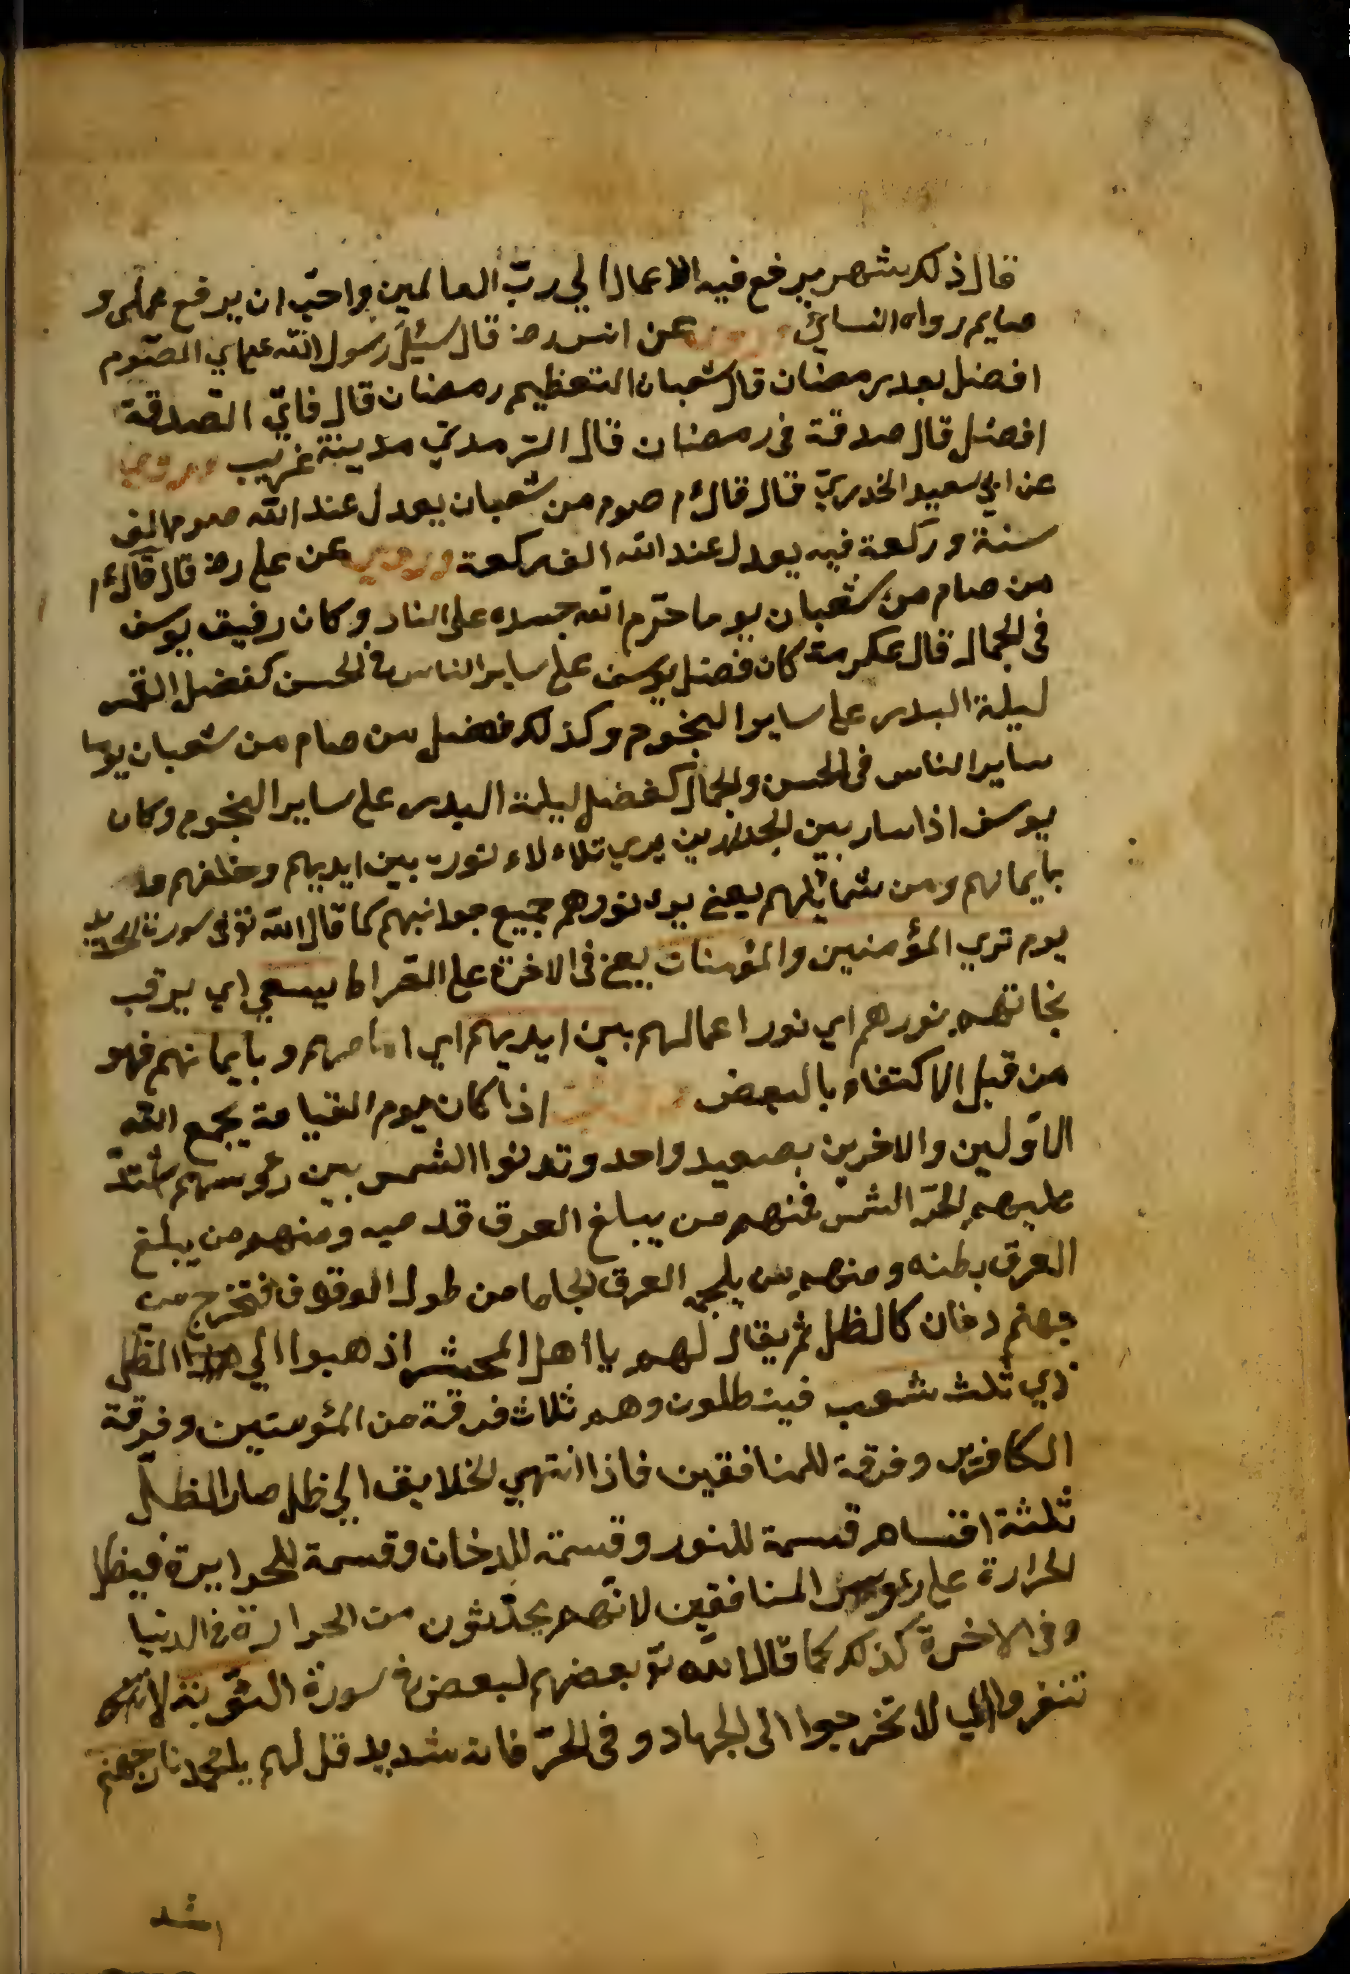 قال ذلك شهر يرفع فيه الاعمال الي ربّ العالمين واحبّ ان يرفع عملي و
صايم رواه النسائي عن انس رضـ قال سئِل رسول الله عم اي الصّوم
افضل بعد رمضان قال شعبان التعظيم رمضان قال فايّ الصّدقة
افضل قال صدقة فى رمضان قال الترمديّ مدينة غريب
عن ابي سعيد الخدريّ قال قال م صوم من شعبان يعدل عند الله صوم الف
سنة وركعة فيه يعدل عند الله الف ركعة وروي عن على رضـ قال قال م
من صام من شعبان يوما حرّم الله جسده على النار وكان رفيق يوسف
فى الجمال قال عكرمة كان فضل يوسف على ساير الناس فى الحسن كفضل القمر
ليلة البدر على ساير النجوم وكذلك فضل من صام من شعبان يوما
ساير الناس فى الحسن والجمال كفضل ليلة البدر على ساير النجوم وكان
يوسف اذا سار بين الجدارين يري تلاءلاء نور بين ايديهم وخلفهم وا
بايمانهم ومن شمائلهم يعنى يرى نورهم جميع جوانبهم كما قال الله تع فى سورة الحديد
يوم تري المؤمنين والمؤمنات يعنى فى الاخرة على الصراط يسعي اي يرقب
نجاتهم نورهم اي نور اعمالهم بين ايديهم اي امامهم وبايمانهم فهو
من قبل الاكتفاء بالبعض اذا كان يوم القيامة يجمع الله
الاوّلين والاخرين بصعيد واحد وتدنوا الشمس بين رؤسهم اشتدّ
عليهم الحرّ الشمس فمنهم من يبلغ العرق قدميه ومنهم من يبلغ
العرق بطنه ومنهم من يلجم العرق لجاما من طول الوقوف فتخرج من
جهنم دخان كالظل ثم يقال لهم يا اهل المحشر اذهبوا الي هذا الظل
ذي ثلث شعب فينطلون وهم ثلاث فرقة من المؤمنين وفرقة
الكافرين وفرقة للمنافقين فاذا انتهي الخلايق الي ظل صار الظلّ
ثلثة اقسام قسمة للنور وقسمة للدخان وقسمة للحرارة فيظل
الحرارة على رؤوس المنافقين لانّهم يحدّثون من الحرارة فى الدنيا
وفى الاخرة كذلك كما قال الله تع بعضهم لبعض فى سورة التوبة لا
تنفروا اي لا تخرجوا الى الجهاد وفى الحرّ فانه شديد قل لهم يا محمد نار جهنم
اشد